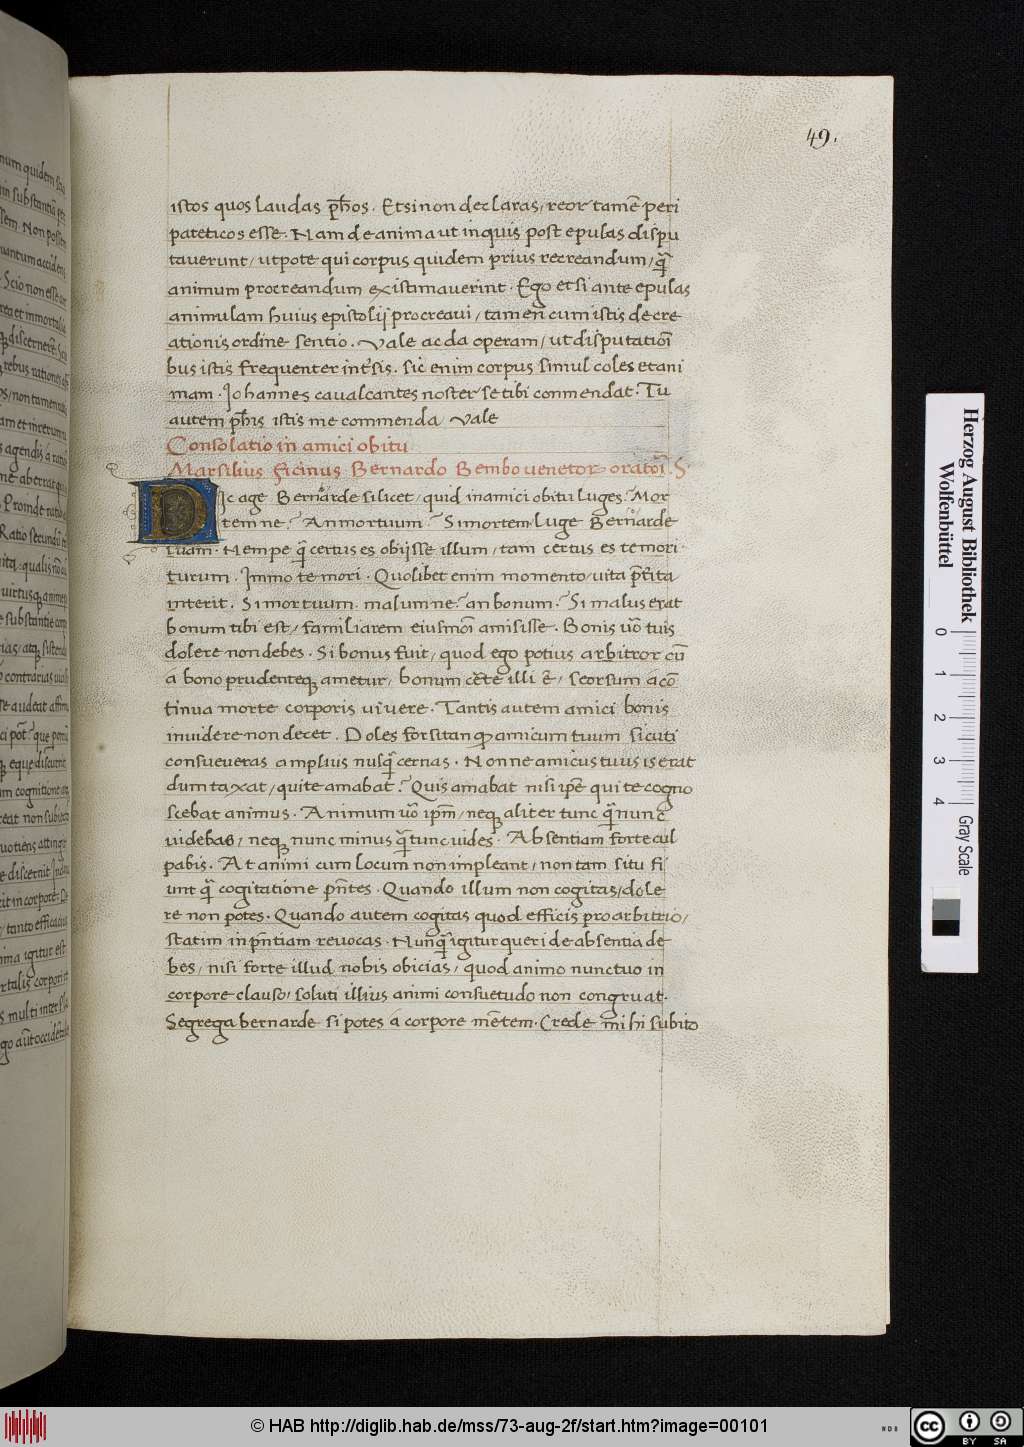 49.
istos quos laudas ph̄os. Etsi non declaras, reor tamē peri
pateticos esse. Nam de anima ut inquis post epulas dispu
taverunt, utpote qui corpus quidem prius recreandum, q̄
animum procreandum existimauerint. Ego etsi ante epulas
animulam huius epistolij procreaui, tamen cum istis de cre
ationis ordine sentio. Vale ac da operam, ut disputatiōi
bus istis frequenter int̄sis. sic enim corpus simul coles et ani
mam. Iohannes caualcantes noster se tibi conmendat. Tu
autem ph̄is istis me commenda Vale
Consolatio in amici obitu
Marsilius ficinus Bernardo Bembo uenetor oratoī. S
DIc age Bernarde si licet, quid in amici obitu luges? Mor
tem ne? An mortuum? Si mortem luge Bernarde
tuam. Nempe q̄ certus es obijsse illum, tam certus es te mori
turum. Immo te mori. Quolibet enim momento uita p̄rita
interit. Si mortuum. malum ne? an bonum? Si malus erat
bonum tibi est, familiarem eiusmōi amisisse. Bonis uō tuis
dolere non debes. Si bonus fuit, quod ego potius arbitror cū
a bono prudenteq ametur, bonum certe illi ē, seorsum a cō
tinua morte corporis uiuere. Tantis autem amici bonis
inuidere non decet. Doles forsitan q amicum tuum sicuti
consueueras amplius nusq̄ cernas. Nonne amicus tuus is erat
dumtaxat, qui te amabat? Quis amabat nisi ip̄e qui te cogno
scebat animus. Animum uō ip̄m, neq aliter tunc q̄ nunc
uidebas, neq nunc minus q̄ tunc uides. Absentiam forte cul
pabis. At animi cum locum non impleant, non tam situ fi
unt q̄ cogitatione p̄ntes. Quando illum non cogitas, dole
re non potes. Quando autem cogitas quod efficis pro arbitrio,
statim in p̄ntiam reuocas. Nunq̄ igitur queri de absentia de
bes, nisi forte illud nobis obicias, quod animo nunc tuo in
corpore clauso, soluti illius animi consuetudo non congruat.
Segrega bernarde si potes a corpore mētem. Crede mihi subito
Herzog August Bibliothek
Wolfenbüttel
0 1 2 3 4
Gray Scale
© HAB http://diglib.hab.de/mss/73-aug-2f/start.htm?image=00101
WDB
cc BY SA